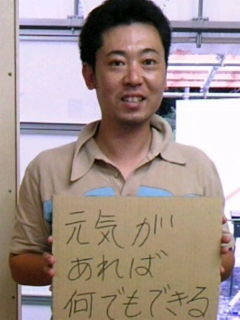 元気が
あれば
何でもできる